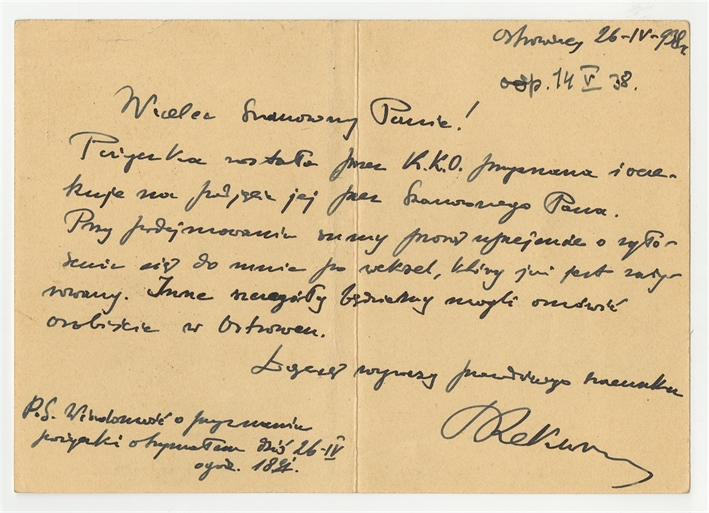 Ostrowiec 26-IV-938r
odp. 14 V 38.
Wielce Szanowny Panie!
Pożyczka została przez K.K.O. przyznana i ocze-
kuje na podjęcie jej przez Szanownego Pana.
Przy podejmowaniu sumy proszę uprzejmie o zgło-
szenie się do mnie po weksel, który już jest zaży-
rowany. Inne szczegóły będziemy mogli omówić
osobiście w Ostrowcu.
Łączę wyrazy prawdziwego szacunku
P.S. Wiadomość o przyznaniu
pożyczki otrzymałem dziś 26-IV
o godz.